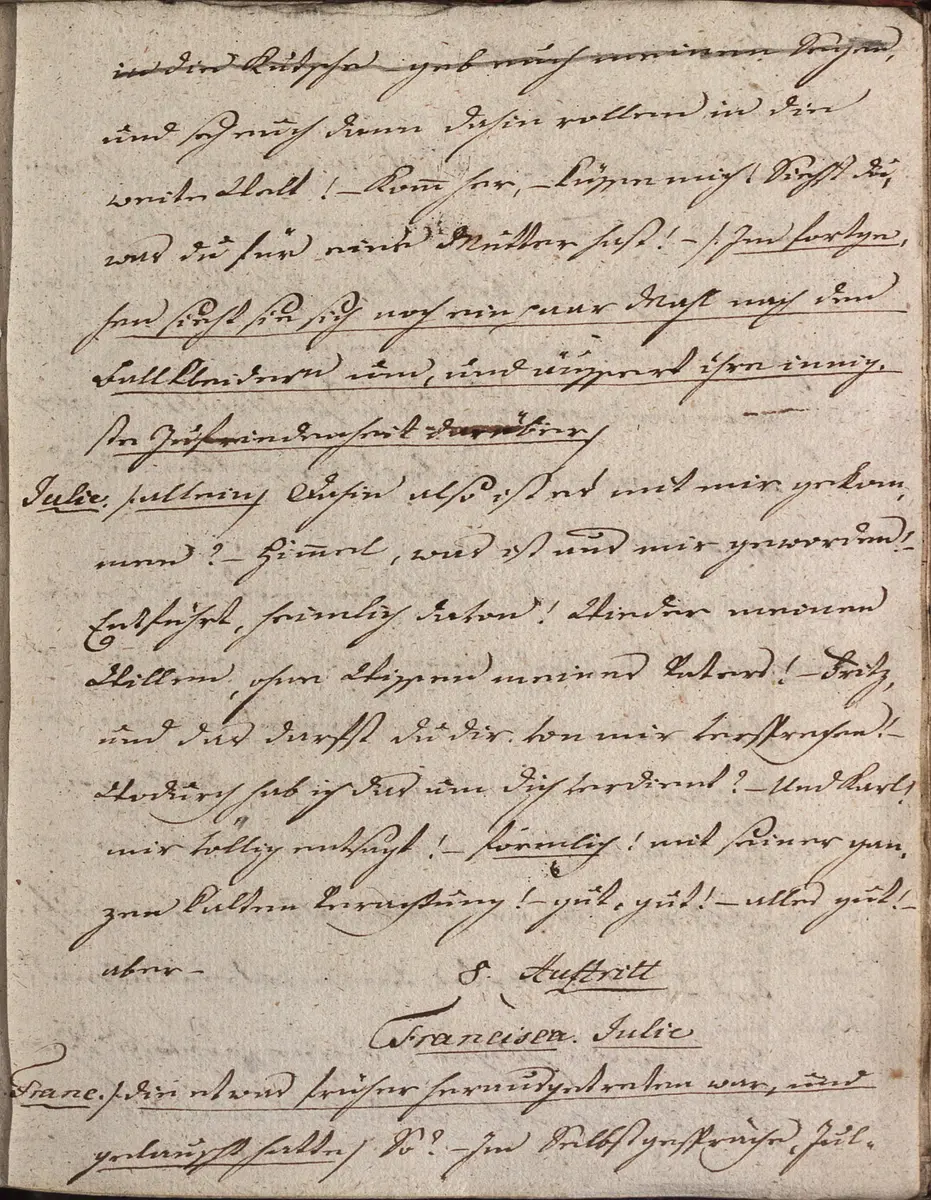 in die Kutsche geb euch meinen Segen,
und seh euch dann dahin rollen in die
weite Welt! – Komm her, – küsse mich! Siehst du,
was du für eine Mutter hast! – /: Im fortge,
hen sieht sie sich noch ein paar Mahl nach den
Ballkleidern um, und äussert ihre innig,
ste Zufriedenheit darüber /
Julie. /: allein / Dahin also ist es mit mir gekom,
men? – Himmel, was ist aus mir geworden! –
Entführt, heimlich davon! Wieder meinen
Willen, ohne Wissen meines Vaters! – Fritz,
und das darfst du dir von mir versprechen! –
Wodurch hab ich das um dich verdient? – Und Karl!
mir völlig entsagt! – förmlich! mit seiner gan,
zen kalten Verachtung! – gut, gut! – alles gut! –
aber –
8. Auftritt
Francisca. Julie
Franc. /: die etwas früher herausgetreten war, und
gelauscht hatte / So? – Im Selbstgespräche, Jul=